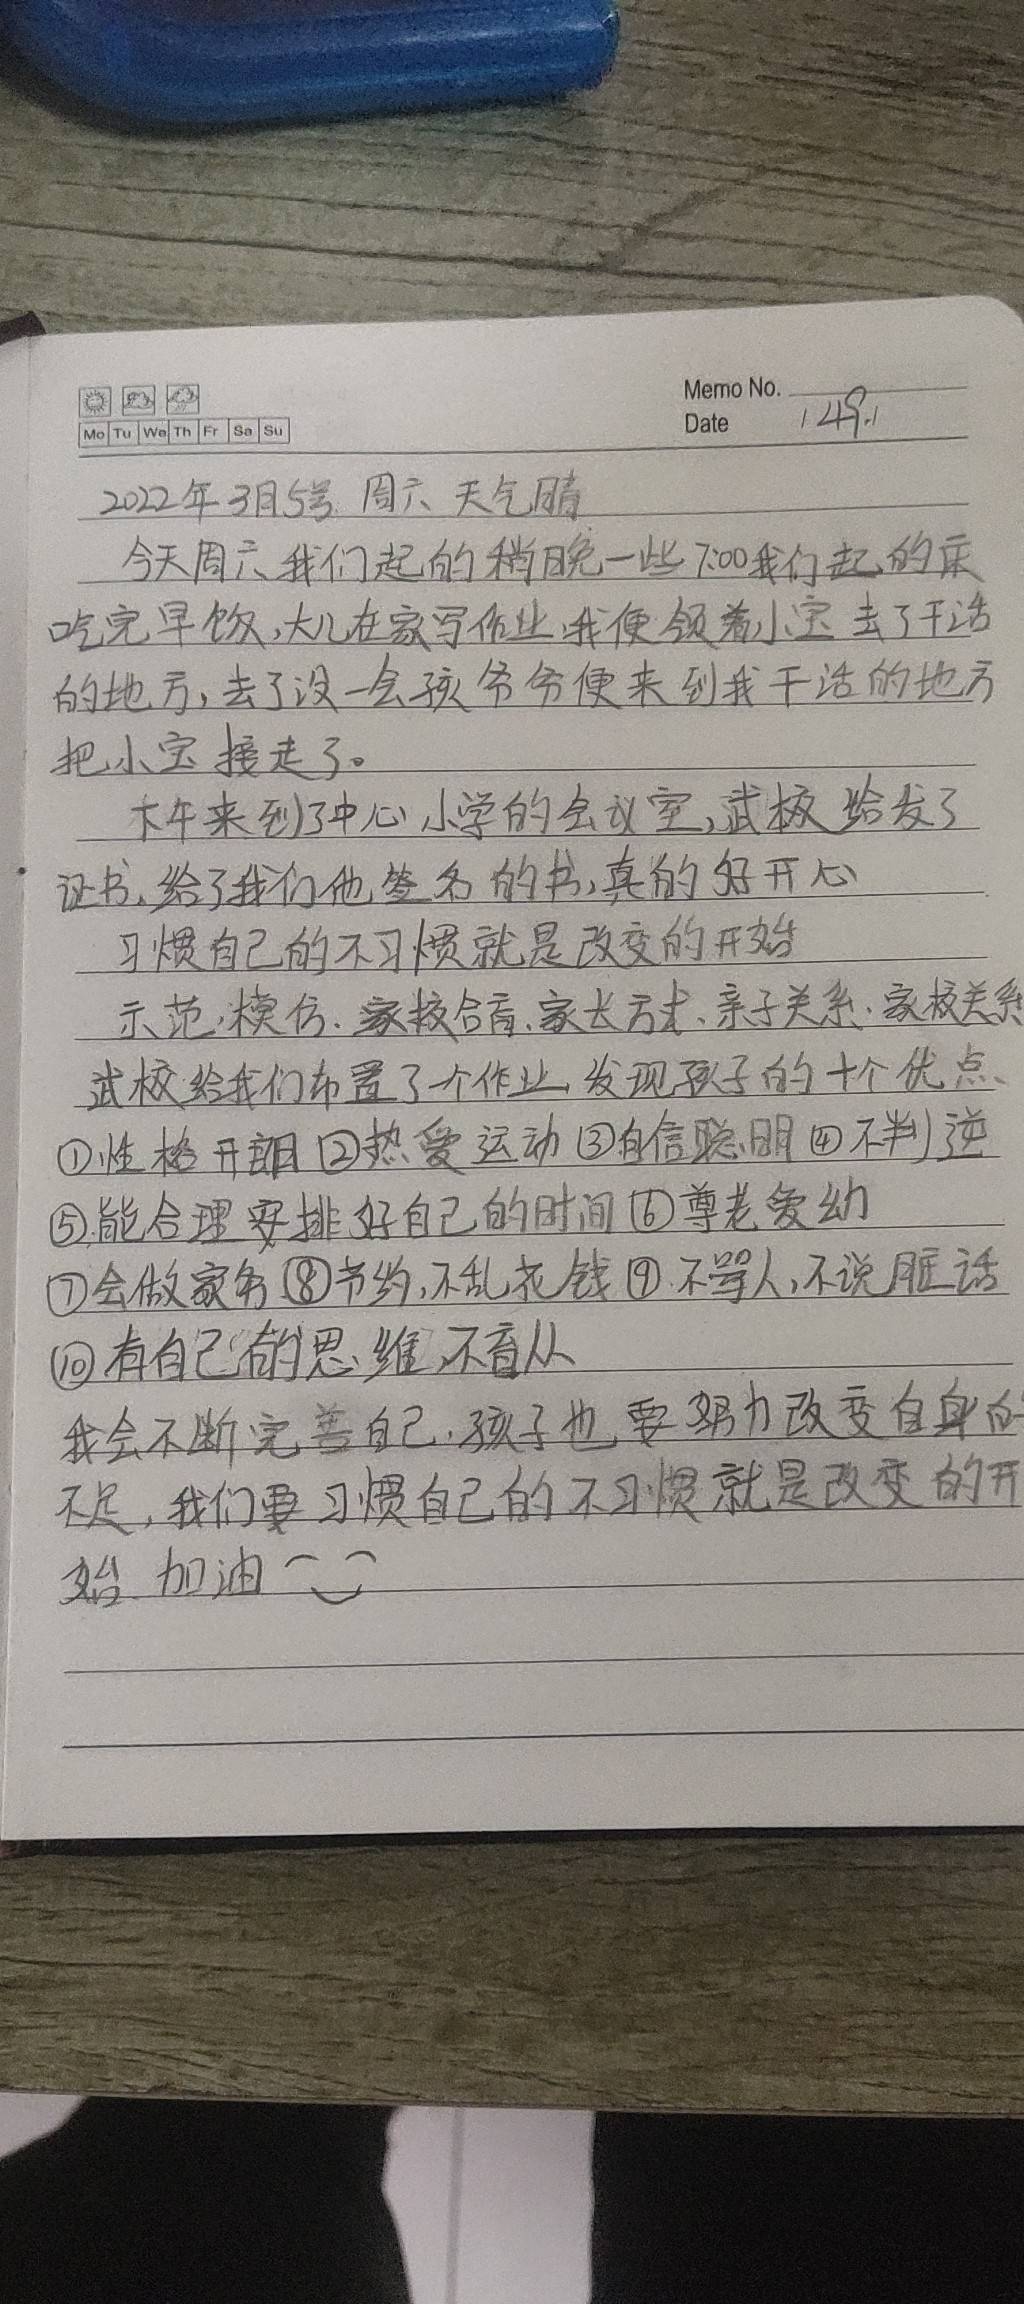 Memo No.
Mo Tu We Th Fr Sa Su
Date 149.1
2022年3月5号 周六 天气晴
今天周六我们起的稍晚一些7:00我们起的床
吃完早饭,大儿在家写作业,我便领着小宝去了干活
的地方,去了没一会孩爷爷便来到我干活的地方
把小宝接走了。
下午来到了中心小学的会议室,武校给发了
证书,给了我们他签名的书,真的好开心
习惯自己的不习惯就是改变的开始
示范·模仿.家校合育、家长方式、亲子关系·家校关系
武校给我们布置了个作业,发现孩子的十个优点、
①性格开朗②热爱运动③自信聪明④不判逆
⑤能合理安排好自己的时间⑥尊老爱幼
⑦会做家务⑧节约,不乱花钱⑨不骂人,不说脏话
⑩有自己的思维,不盲从
我会不断完善自己.孩子也要努力改变自身的
不足,我们要习惯自己的不习惯就是改变的开
始.加油